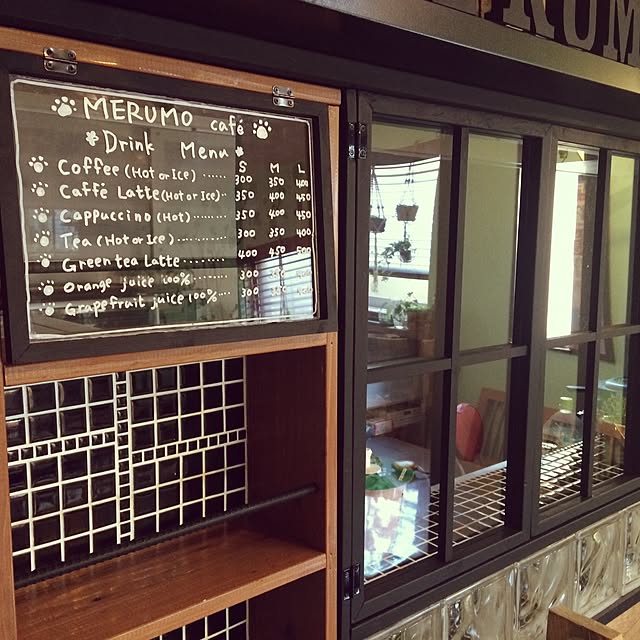 MERUMO café
Drink Menu
S M L
Coffee (Hot or Ice) ...... 300 350 400
Caffé Latte (Hot or Ice) .. 350 400 450
Cappuccino (Hot) ........ 350 400 450
Tea (Hot or Ice) ......... 300 350 400
Green tea Latte ........ 400 450 500
Orange juice 100% ..... 300 350
Grapefruit juice 100% ... 300 350
RUM